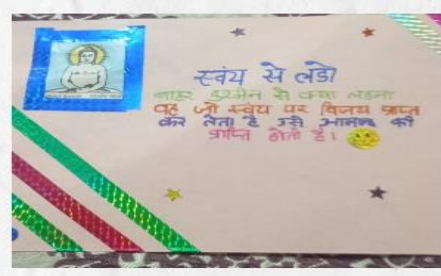 स्वंय से लडो
बाहर दुश्मन से क्या लडना
वह जो स्वंय पर विजय प्राप्त
कर लेता है उसे आनन्द की
प्राप्ति होती है।